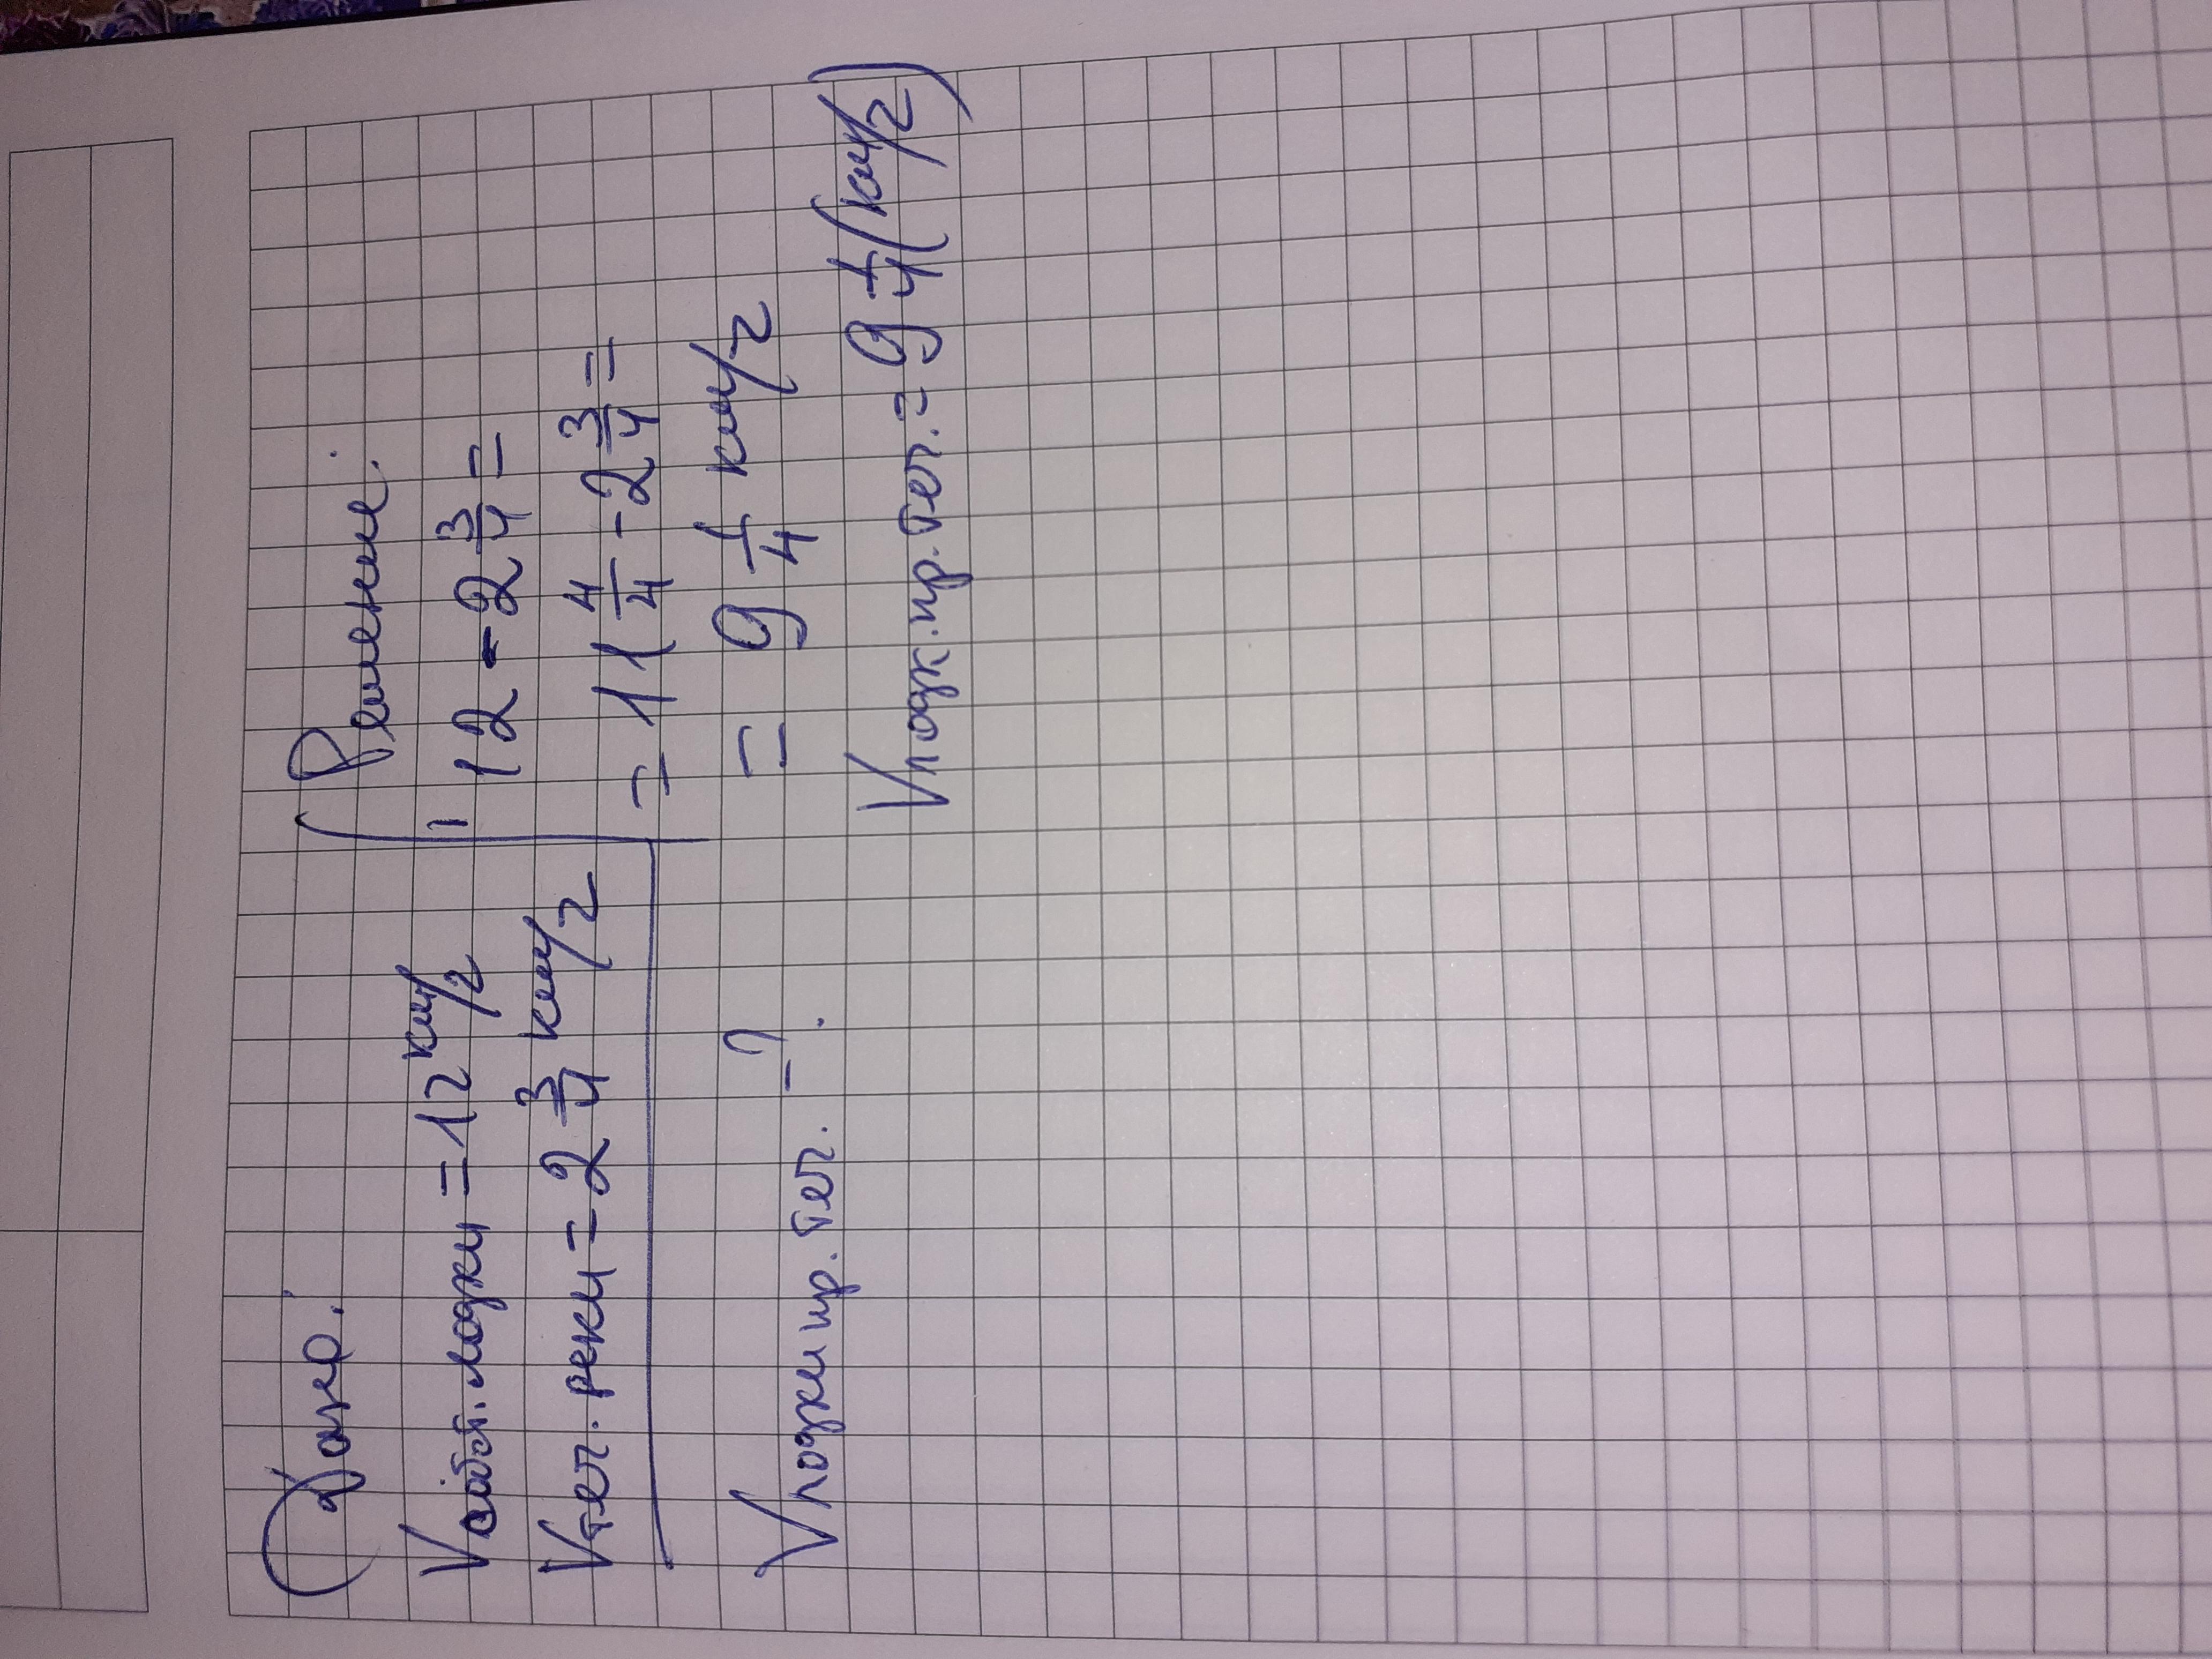 Дано:
Vсобст. лодки = 12 км/ч
Vтеч. реки = 2 3/4 км/ч
Vлодки пр. теч. - ?
Решение:
12 - 2 3/4 =
= 11 4/4 - 2 3/4 =
= 9 1/4 км/ч
Vлодк. пр. теч. = 9 1/4 (км/ч)